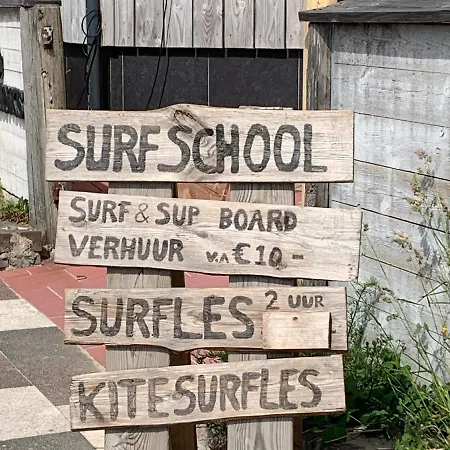 SURFSCHOOL
SURF & SUP BOARD
VERHUUR v.A €10.-
SURFLES 2 UUR
KITESURFLES